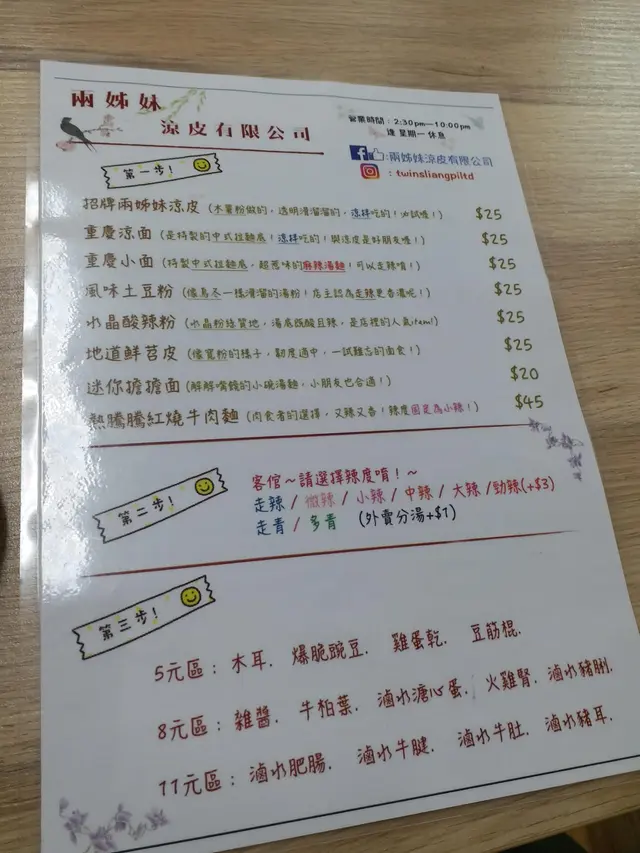 兩姊妹
涼皮有限公司
營業時間：2:30pm—10:00pm
逢 星期一 休息
:兩姊妹涼皮有限公司
: twinsliangpiltd
第一步!
招牌兩姊妹涼皮 (木薯粉做的，透明滑溜溜的，涼拌吃的！汕試喔！) $25
重慶涼面 (是特製的中式拉麵底！涼拌吃的！與涼皮是好朋友喔！) $25
重慶小面 (特製中式拉麵底，超惹味的麻辣湯麵！可以走辣唷！) $25
風味土豆粉 (像烏冬一樣滑溜的湯粉！店主認為走辣更香濃呢！) $25
水晶酸辣粉 (水晶粉絲質地，湯底既酸且辣，是店裡的人氣item!) $25
地道鮮苕皮 (像寬粉的樣子，韌度適中，一試難忘的面食！) $25
迷你擔擔面 (解解嘴饞的小碗湯麵，小朋友也合適！) $20
熱騰騰紅燒牛肉麵 (肉食者的選擇，又辣又香！辣度固定為小辣！) $45
第二步!
客倌～請選擇辣度唷！～
走辣 / 微辣 / 小辣 / 中辣 / 大辣 /勁辣(+$3)
走青 / 多青 (外賣分湯+$1)
第三步!
5元區：木耳. 爆脆豌豆. 雞蛋乾. 豆筋棍.
8元區：雜醬. 牛柏葉. 滷水溏心蛋. 火雞腎. 滷水豬脷.
11元區：滷水肥腸. 滷水牛腱. 滷水牛肚. 滷水豬耳.